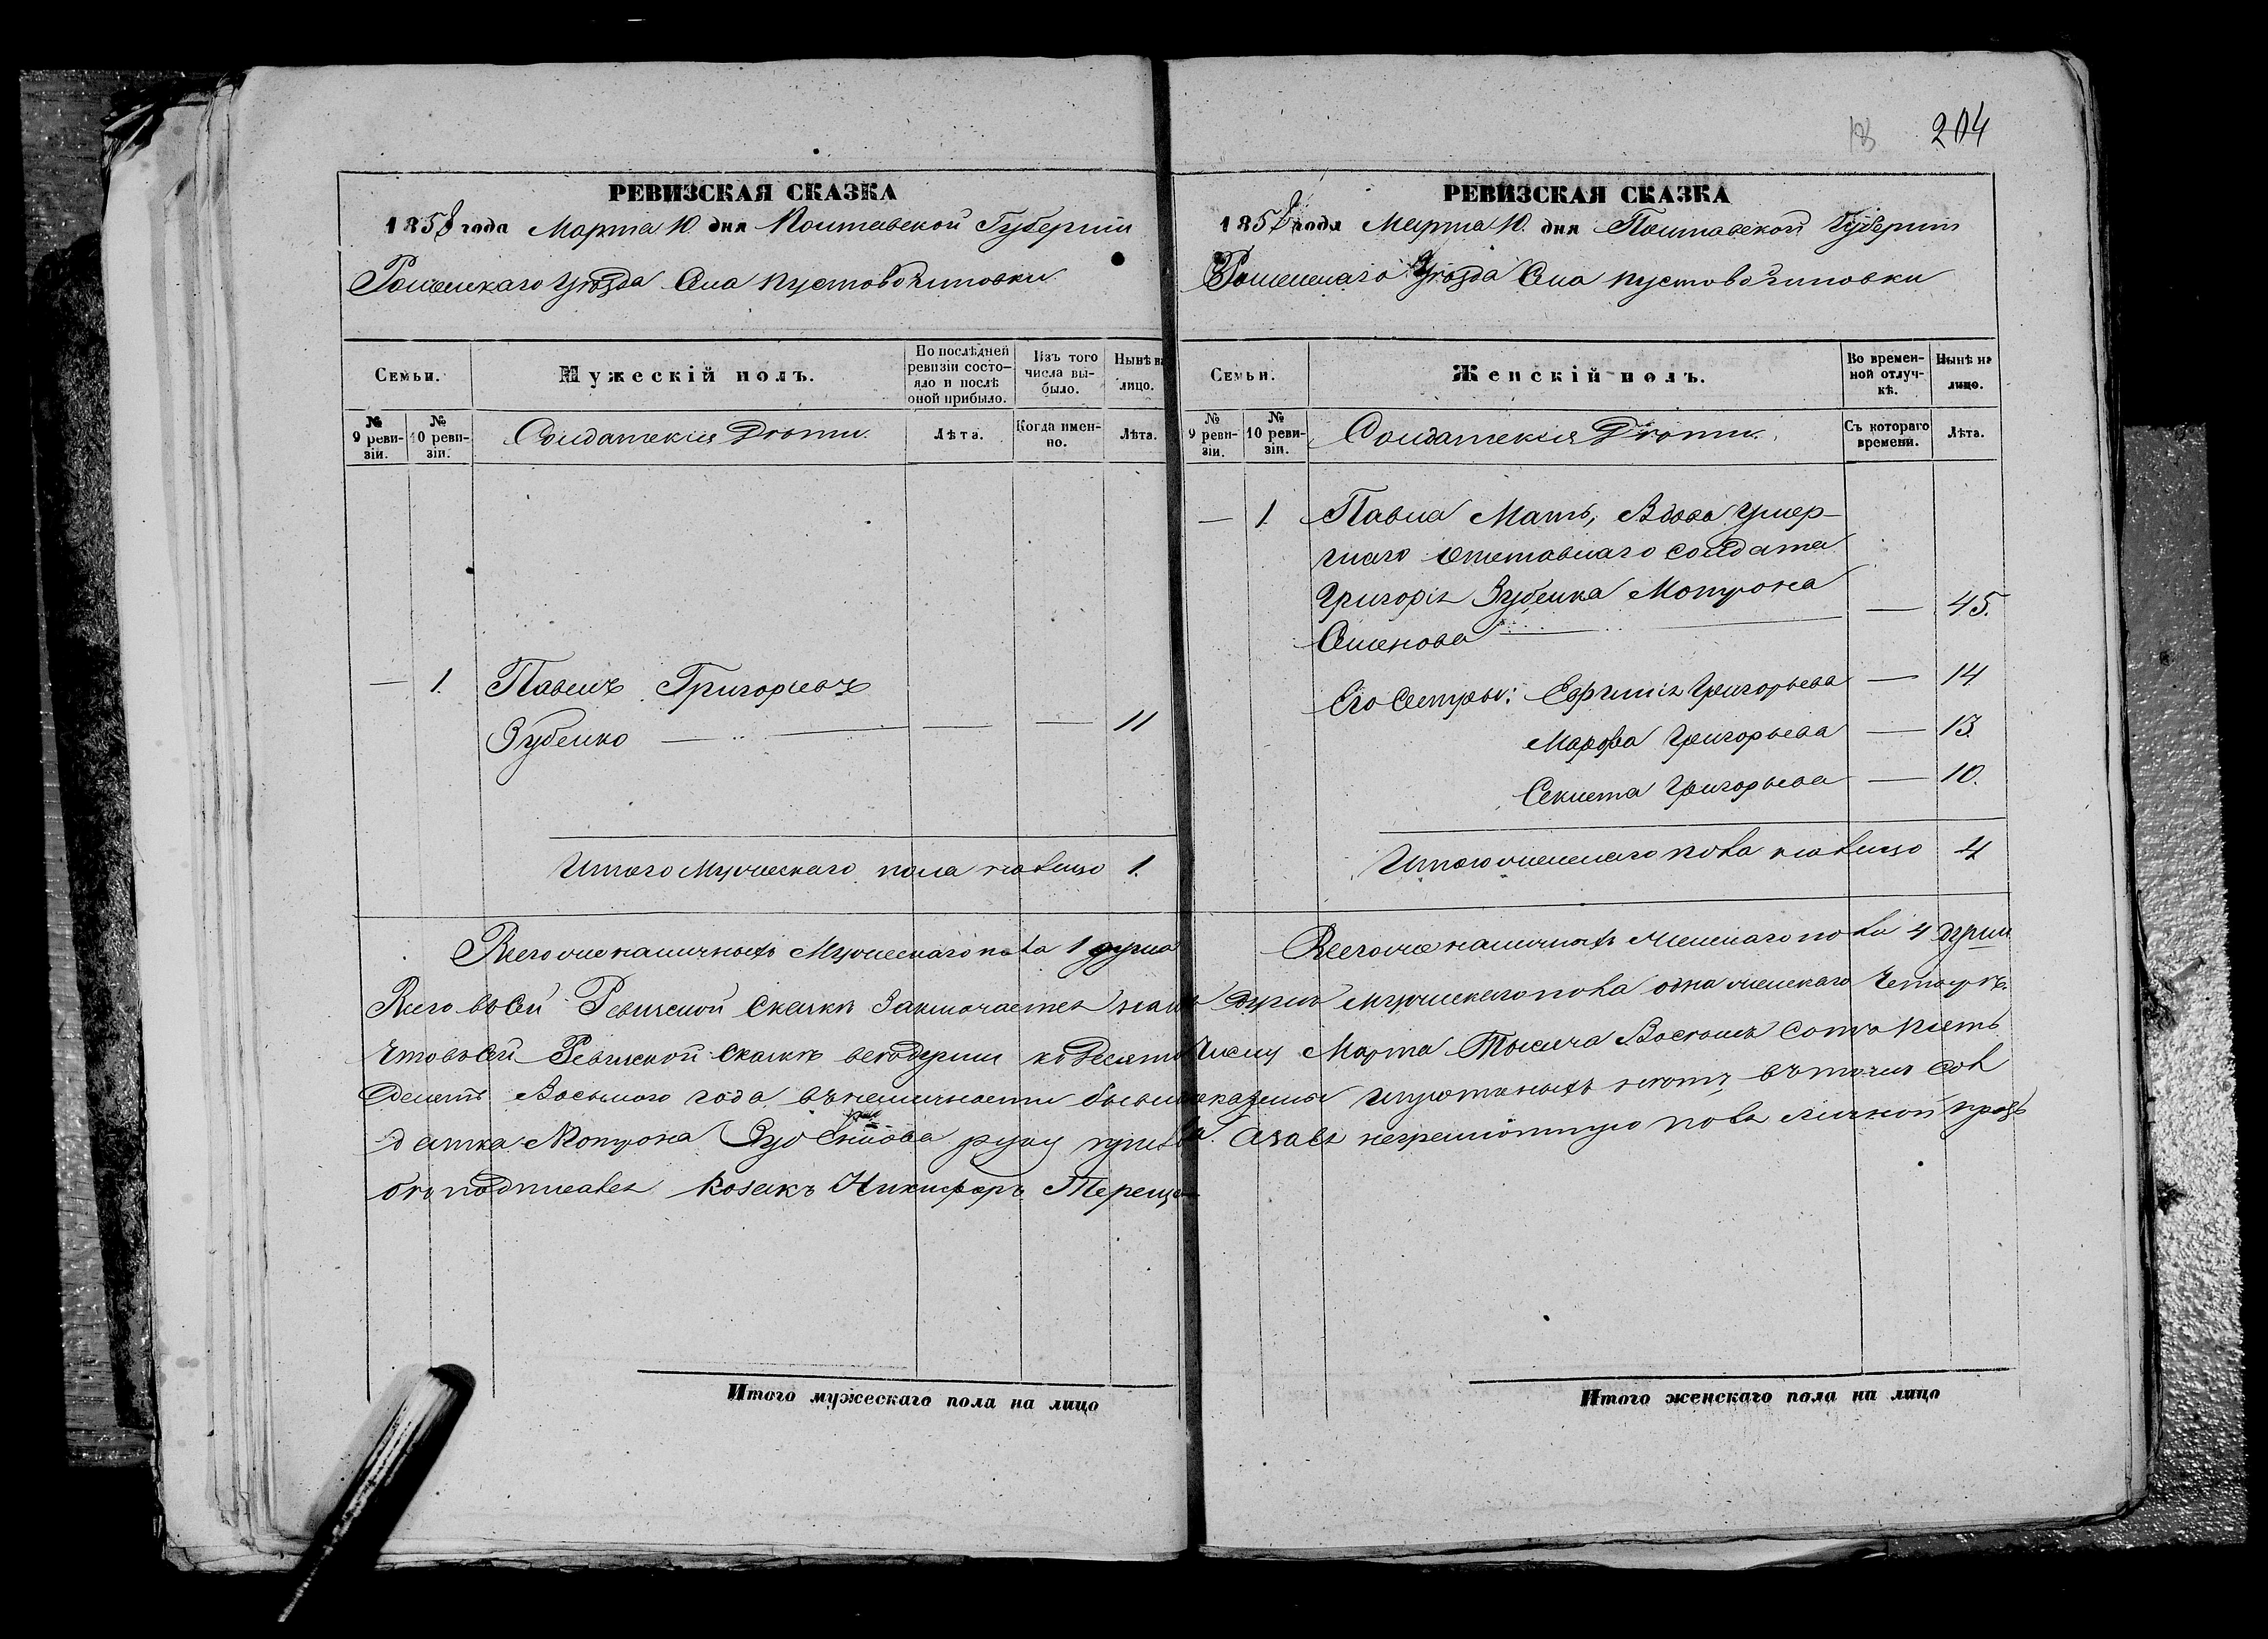 204
РЕВИЗСКАЯ СКАЗКА
1858 года Марта 10. дня Полтавской Губернiи
Роменскаго Уѣзда Села пустовойтовки
Семьи.
Мужескiй полъ.
По послѣдней ревизiи состояло и послѣ оной прибыло.
Изъ того числа выбыло.
Нынѣ на лицо.
№ 9 ревизiи.
№ 10 ревизiи.
Солдатскiя Дѣти.
Лѣта.
Когда именно.
Лѣта.
— 1. Павелъ Григорьевъ
Зубенко — — — 11
Итого Мужескаго пола налицо 1.
РЕВИЗСКАЯ СКАЗКА
1858 года Марта 10. дня Полтавской Губернiи
Роменскаго Уѣзда Села пустовойтовки
Семьи.
Женскiй полъ.
Во временной отлучкѣ.
Нынѣ на лицо.
№ 9 ревизiи.
№ 10 ревизiи.
Солдатскiя Дѣти.
Съ котораго времени.
Лѣта.
— 1. Павла Мать, Вдова Умер-
шаго отставнаго солдата
Григорiя Зубенка Мотрона
Семенова — — 45.
Его Сестры: Евфимiя Григорьева — 14
Марфа Григорьева — 13.
Секлета Григорьева — 10.
Итого женскаго пола налицо 4
Всего же наличныхъ Мужескаго пола 1 душа
Всего же наличныхъ женскаго пола 4 души
Всего въ сей Ревизской Сказкѣ Заключается душъ мужескаго пола одна женскаго Четыре.
Что въ сей Ревизской Сказкѣ всѣ души къ Десятому Числу Марта Тысяча Восемь Сотъ Пять
Десятъ Восьмого года въ наличности показаны и въ томъ Сол
датка Мотрона руку
подписался Козакъ Никифоръ
Итого мужескаго пола на лицо
Итого женскаго пола на лицо